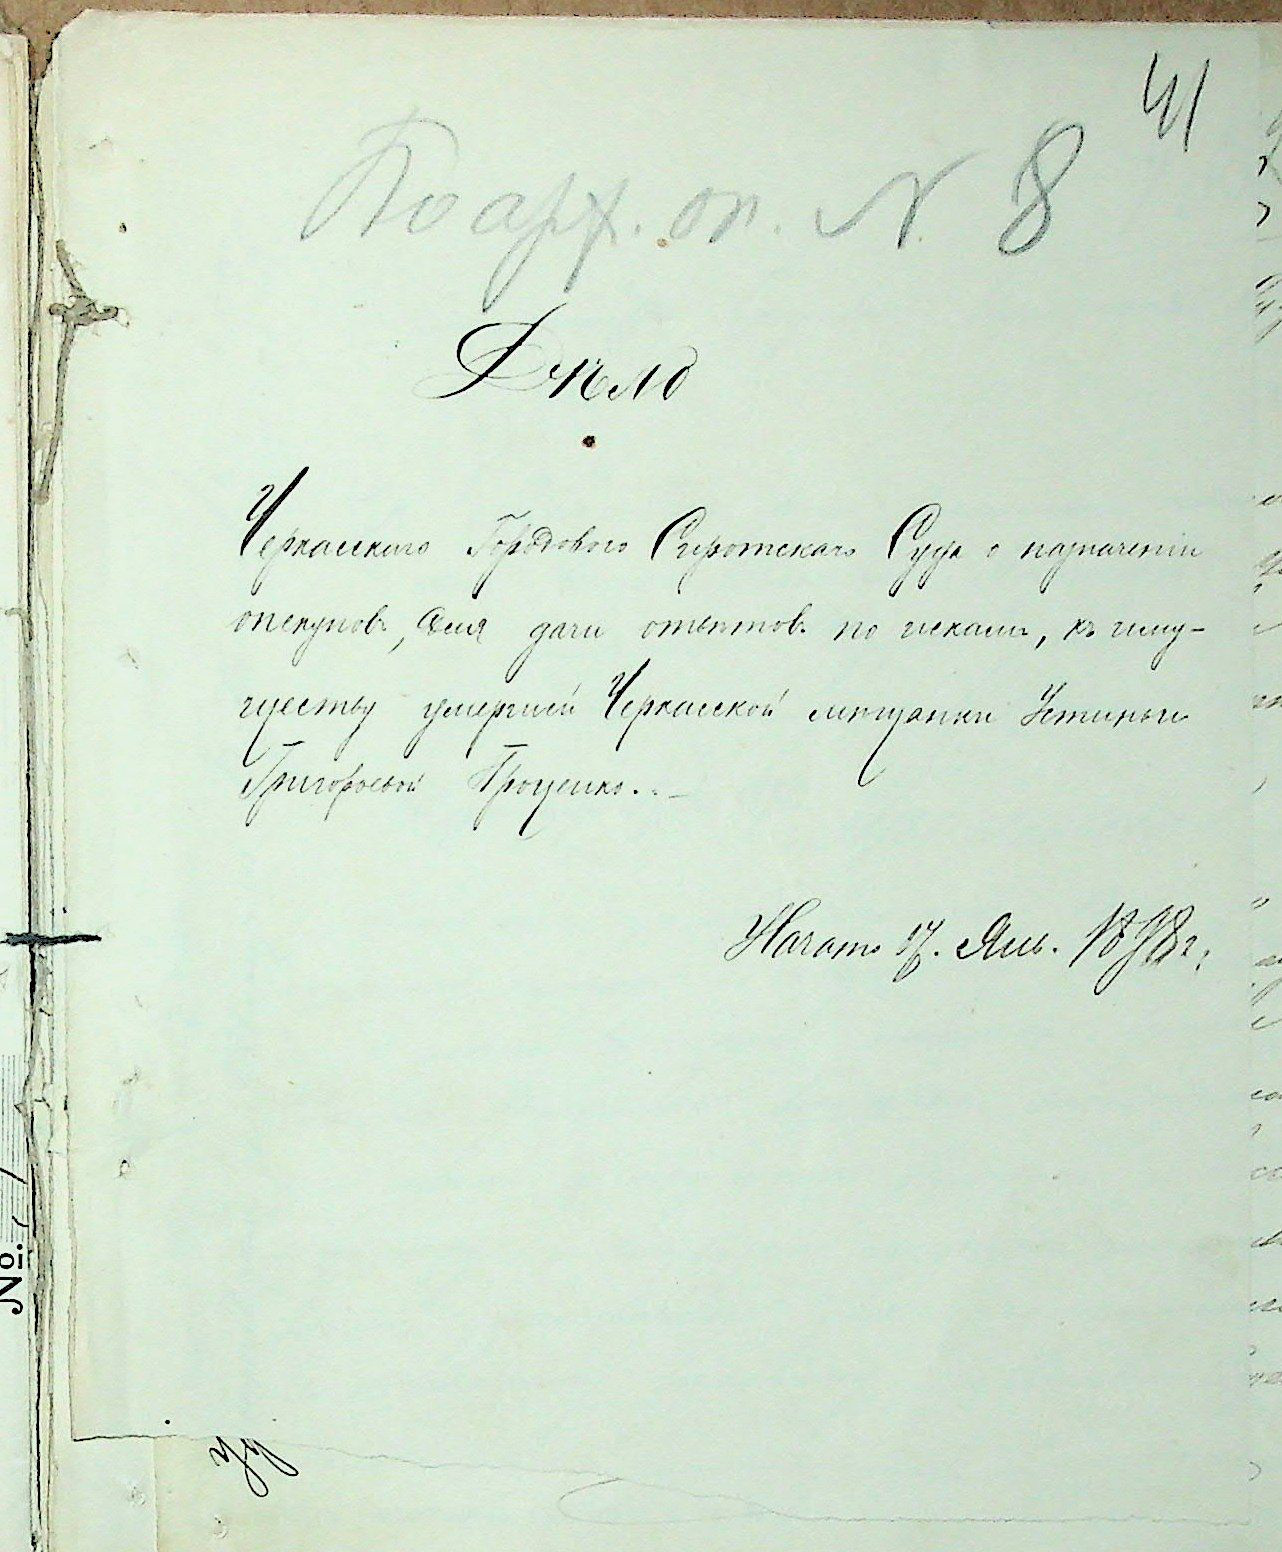 41
По арх. оп. N. 8
Дѣло
Черкасскаго Городового Сиротскаго Суда о назначеніи
опекуновъ, для дачи отвѣтовъ по искамъ, къ иму-
ществу умершей Черкасской мѣщанки Устиньи
Григорьевой Проценко. . –
Начато 17. Янв. 1898 г.
№